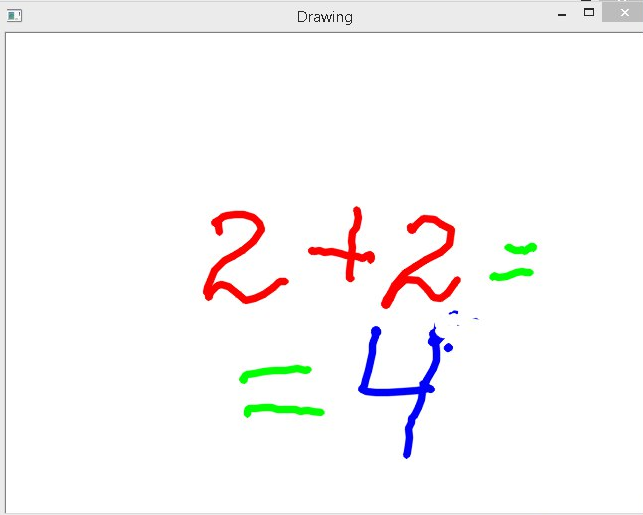 Drawing
2 + 2 =
= 4